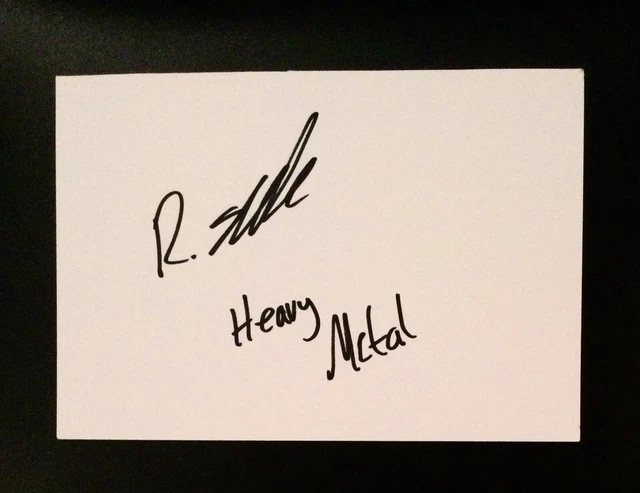 R.
Heavy
Metal